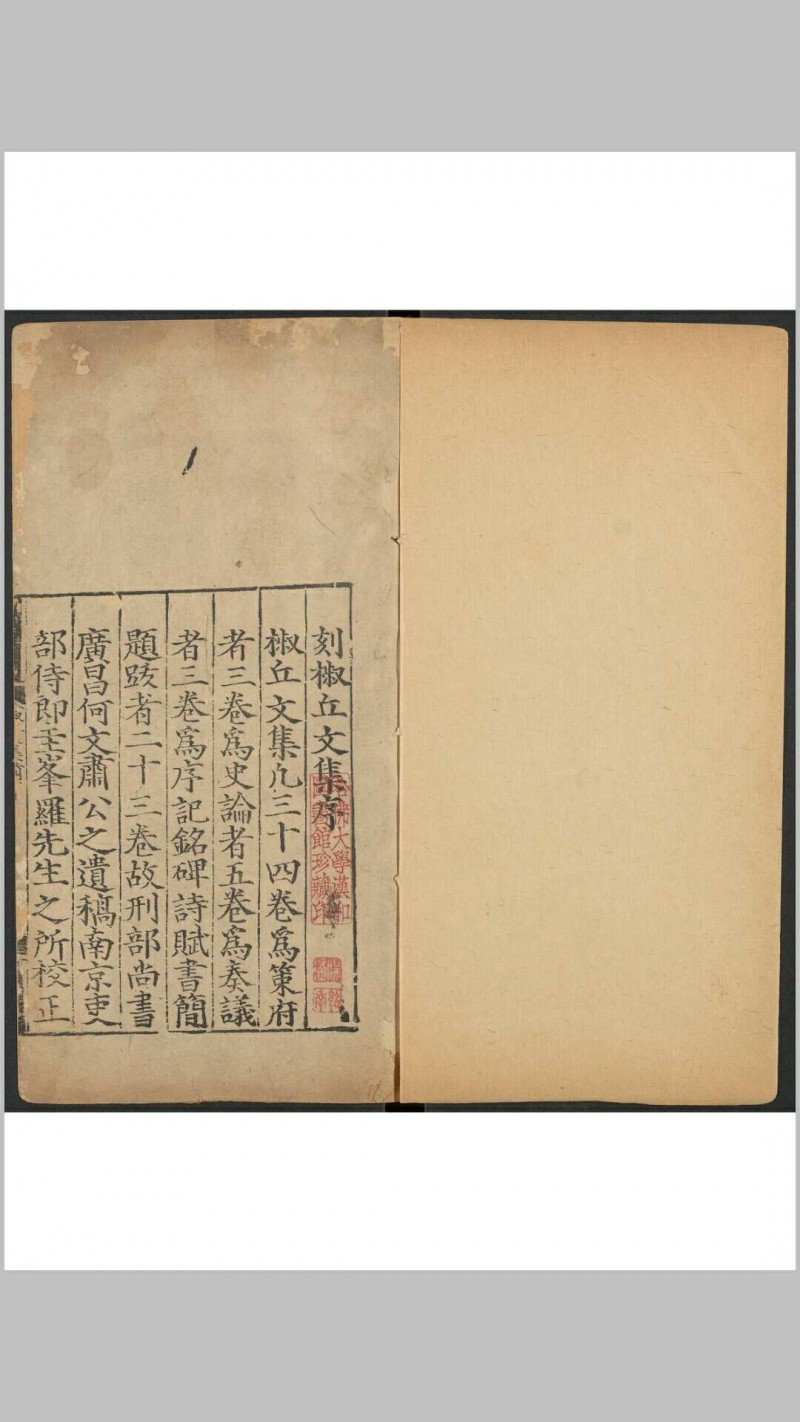 刻椒丘文集序
椒丘文集凡三十四卷爲策府
者三卷爲史論者五卷爲奏議
者三卷爲序記銘碑詩賦書簡
題跋者二十三卷故刑部尚書
廣昌何文肅公之遺稿南京吏
部侍郎圭峯羅先生之所校正
哈佛大學漢和
圖書館珍藏印